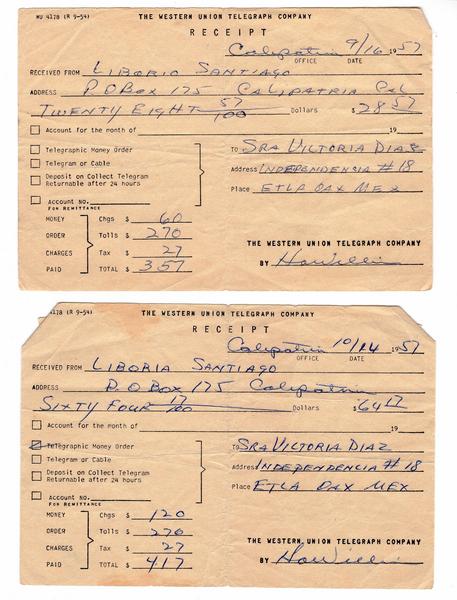 WU 4178 (R 9-54) THE WESTERN UNION TELEGRAPH COMPANY
RECEIPT
Calipatria 9/16 1957
OFFICE DATE
RECEIVED FROM LIBORIO SANTIAGO
ADDRESS P.O BOX 175 CALIPATRIA Cal
TWENTY EIGHT 57/100 Dollars $ 28 57
Account for the month of 19
Telegraphic Money Order TO SRA VICTORIA DIAZ
Telegram or Cable Address INDEPENDENCIA # 18
Deposit on Collect Telegram
Returnable after 24 hours Place ETLA OAX MEX
Account No.
FOR REMITTANCE
MONEY Chgs $ 60
ORDER Tolls $ 270
CHARGES Tax $ 27 THE WESTERN UNION TELEGRAPH COMPANY
PAID TOTAL $ 3.57 BY
4178 (R 9-54) THE WESTERN UNION TELEGRAPH COMPANY
RECEIPT
Calipatria 10/14 1957
OFFICE DATE
RECEIVED FROM LIBORIA SANTIAGO
ADDRESS P.O BOX 175 Calipatria
SIXTY FOUR 17/100 Dollars $ 64 17
Account for the month of 19
Telegraphic Money Order TO SRA VICTORIA DIAZ
Telegram or Cable Address INDEPENDENCIA # 18
Deposit on Collect Telegram
Returnable after 24 hours Place ETLA OAX MEX
Account No.
FOR REMITTANCE
MONEY Chgs $ 120
ORDER Tolls $ 270
CHARGES Tax $ 27 THE WESTERN UNION TELEGRAPH COMPANY
PAID TOTAL $ 417 BY